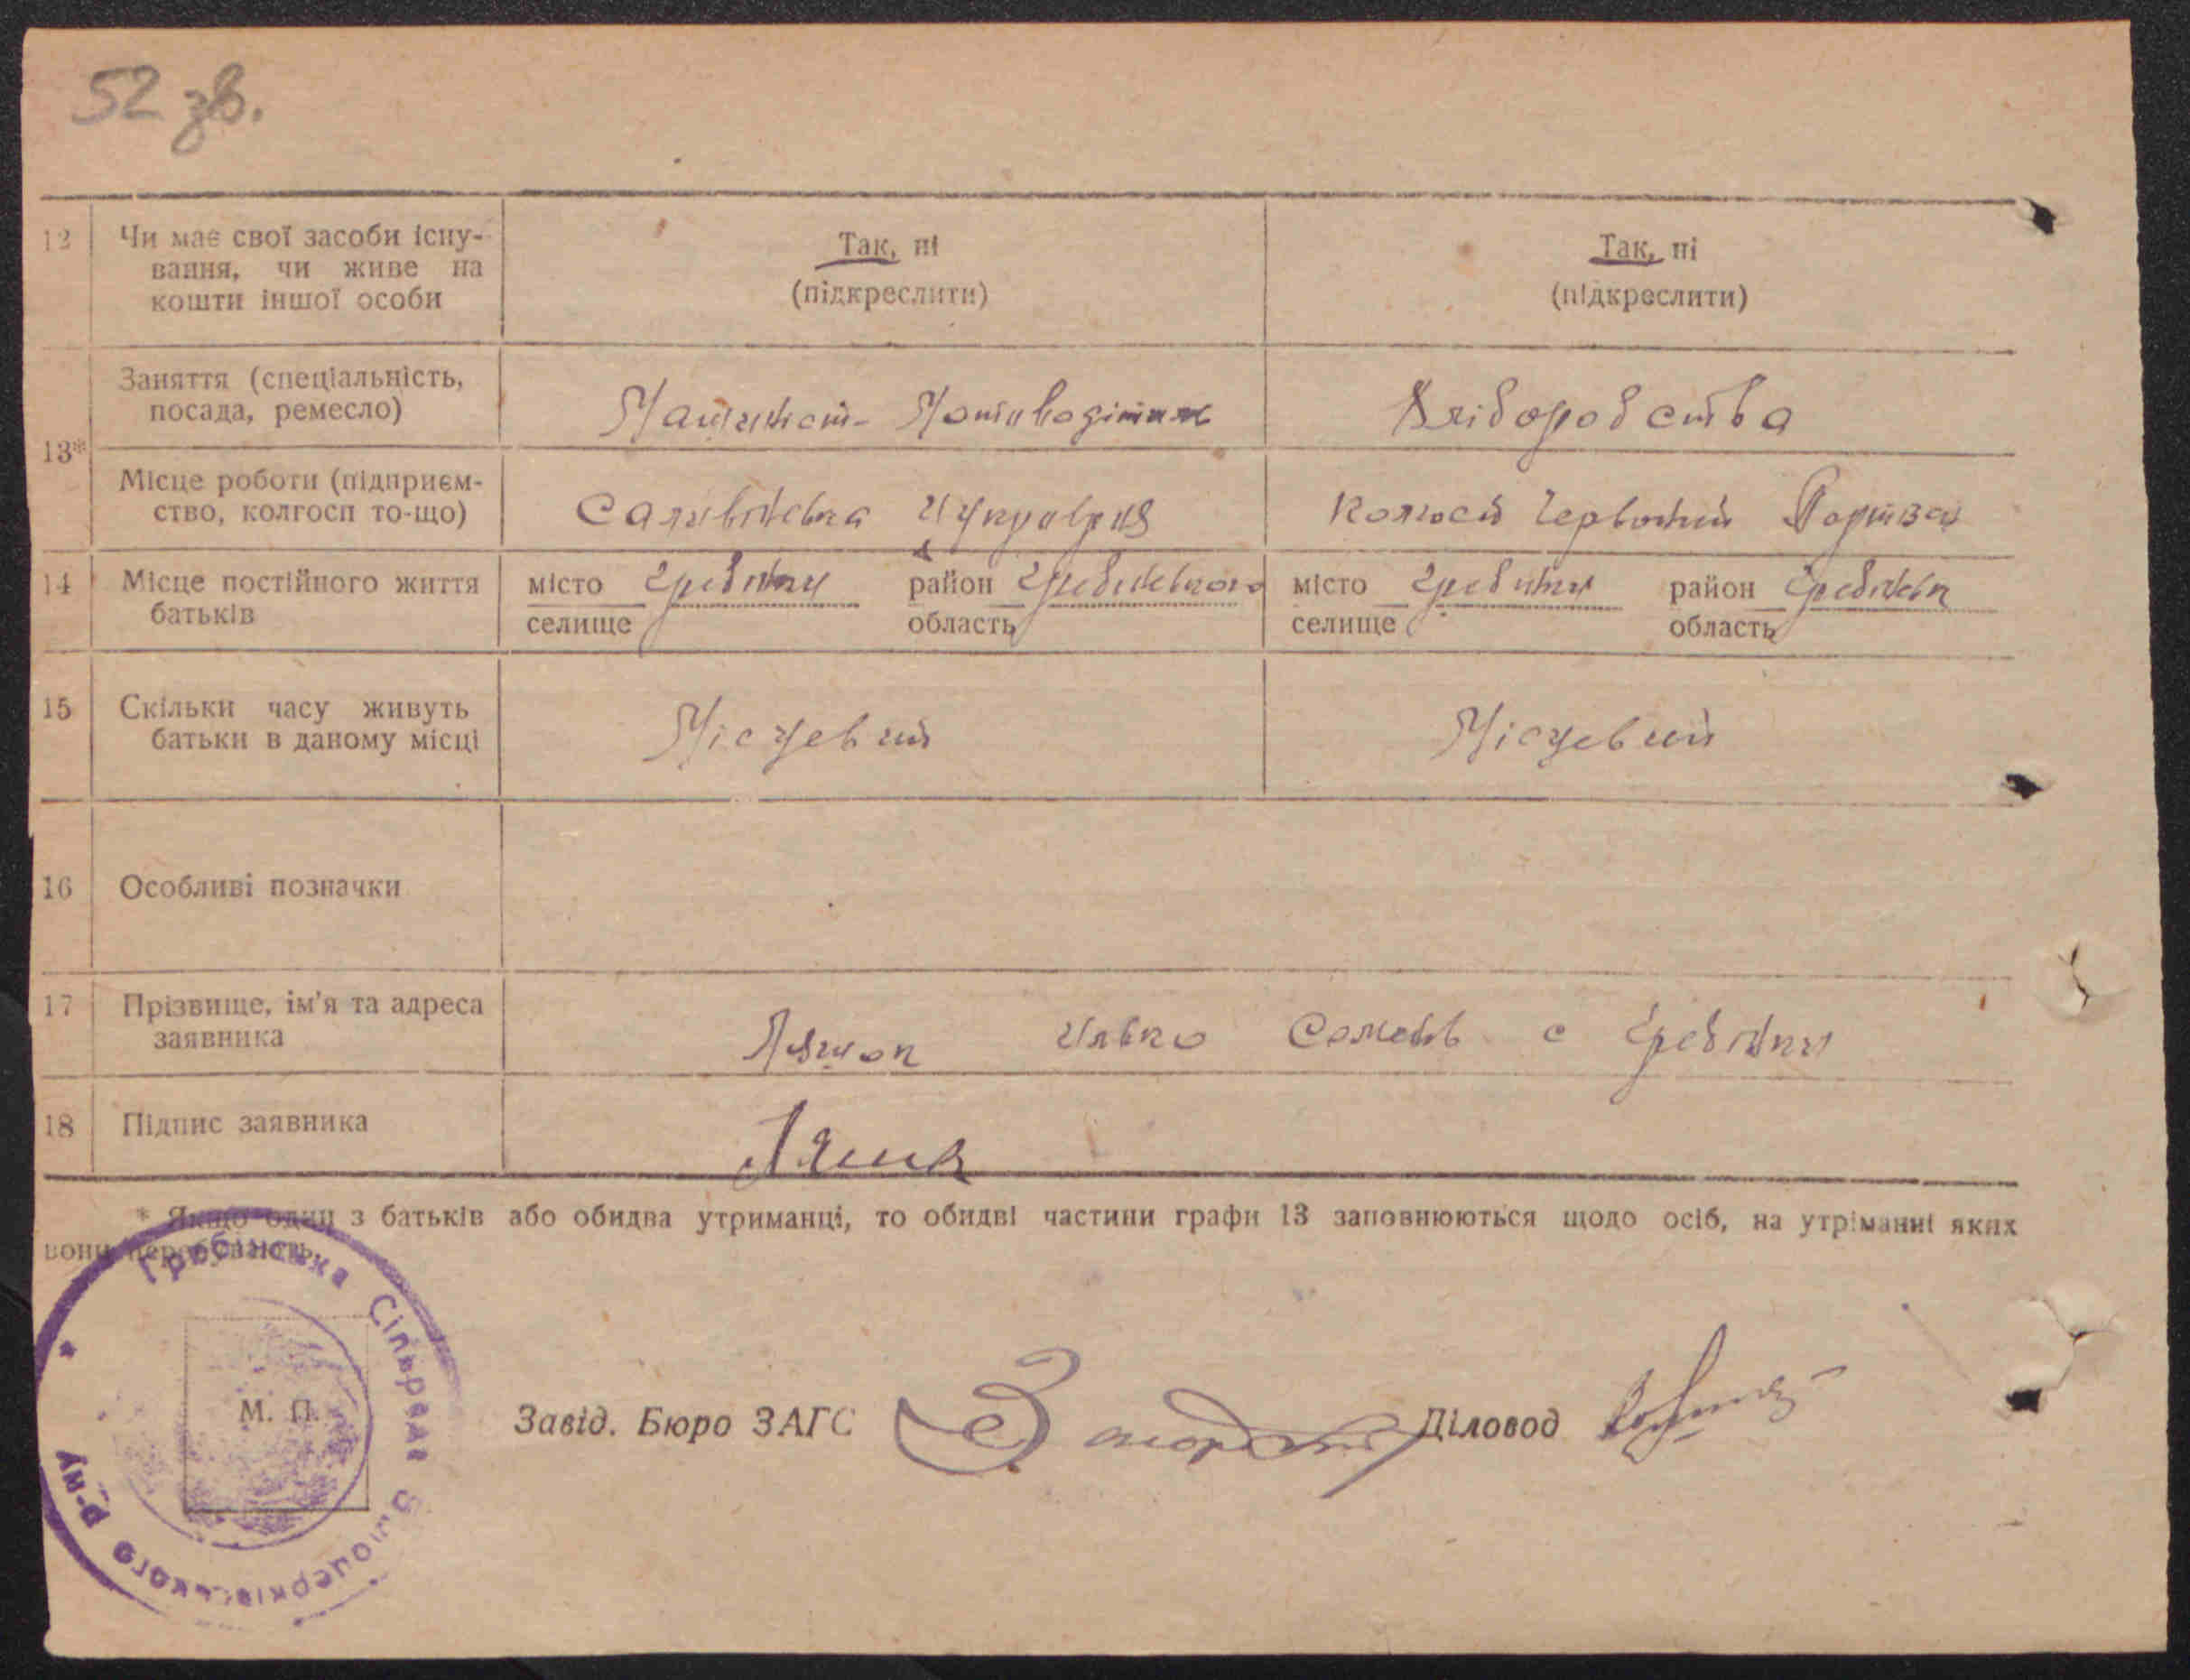 52 зв.
12 Чи має свої засоби існу-
вання, чи живе на
кошти іншої особи
Так, ні
(підкреслити)
Так, ні
(підкреслити)
13*
Заняття (спеціальність,
посада, ремесло)
Машиніст-
Хліборобства
Місце роботи (підприєм-
ство, колгосп то-що)
Саливонка
Червоний Партизан
14 Місце постійного життя
батьків
місто Гребінки район
селище область
місто Гребінки район
селище область
15 Скільки часу живуть
батьки в даному місці
Місцевий
Місцевий
16 Особливі позначки
17 Прізвище, ім'я та адреса
заявника
с Гребінки
18 Підпис заявника
* Якщо один з батьків або обидва утриманці, то обидві частини графи 13 заповнюються щодо осіб, на утріманні яких
вони перебувають.
Гребінська Сільрада Білоцерківського р-ну
М. П.
Завід. Бюро ЗАГС
Діловод